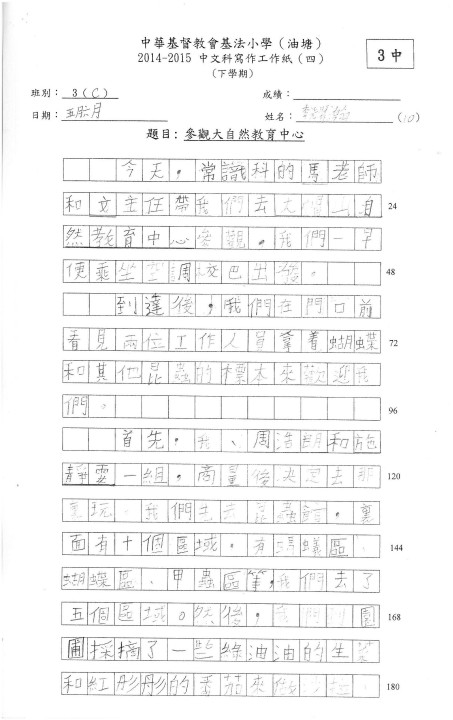 中華基督教會基法小學（油塘）
2014-2015 中文科寫作工作紙（四）
（下學期）
3中
班別： 3（C） 成績：
日期： 五月 姓名： （10）
題目：參觀大自然教育中心
今天，常識科的馬老師
和文主任帶我們去大自 24
然教育中心參觀。我們一早
便乘坐空調校巴出發。 48
到達後，我們在門口前
看見兩位工作人員拿着蝴蝶 72
和其他昆蟲的標本來歡迎我
們。 96
首先，我、周浩朗和施
靜雯一組，商量後決定去那 120
裏玩。我們先去昆蟲館，裏
面有十個區域，有螞蟻區、 144
蝴蝶區、甲蟲區等，我們去了
五個區域。然後，我們到園 168
圃採摘了一些綠油油的生菜
和紅彤彤的番茄來做沙拉。 180